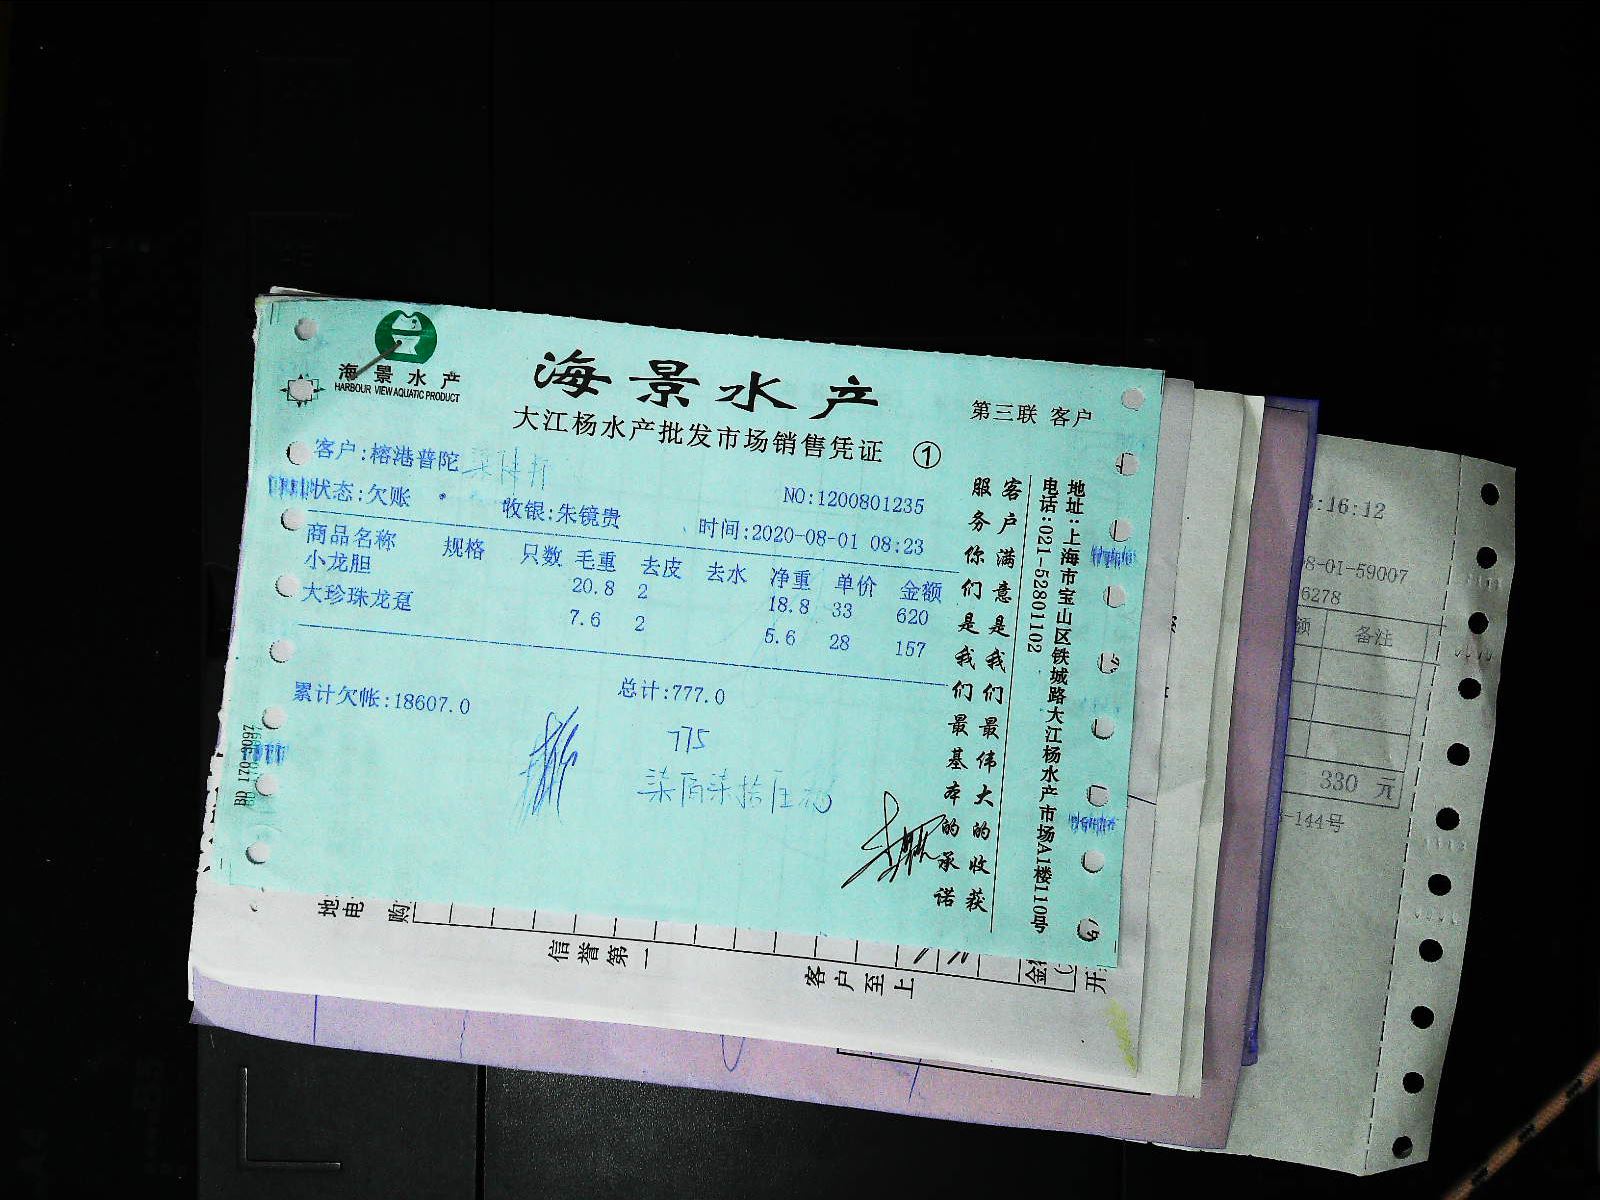 海景水产
HARBOUR VIEW AQUATIC PRODUCT
海景水产
大江杨水产批发市场销售凭证 ①
第三联 客户
客户:榕港普陀
状态:欠账
收银:朱镜贵
NO:1200801235
时间:2020-08-01 08:23
商品名称 规格 只数 毛重 去皮 去水 净重 单价 金额
小龙胆 20.8 2 18.8 33 620
大珍珠龙趸 7.6 2 5.6 28 157
累计欠帐:18607.0 总计:777.0
775
地址:上海市宝山区铁城路大江杨水产市场A1楼110号
电话:021-52801102
客户满意是我们最伟大的收获
服务你们是我们最基本的承诺
BD 170-3097
地
电
购
信誉第一
客户至上
开
:16:12
8-01-59007
6278
额 备注
330 元
-144号